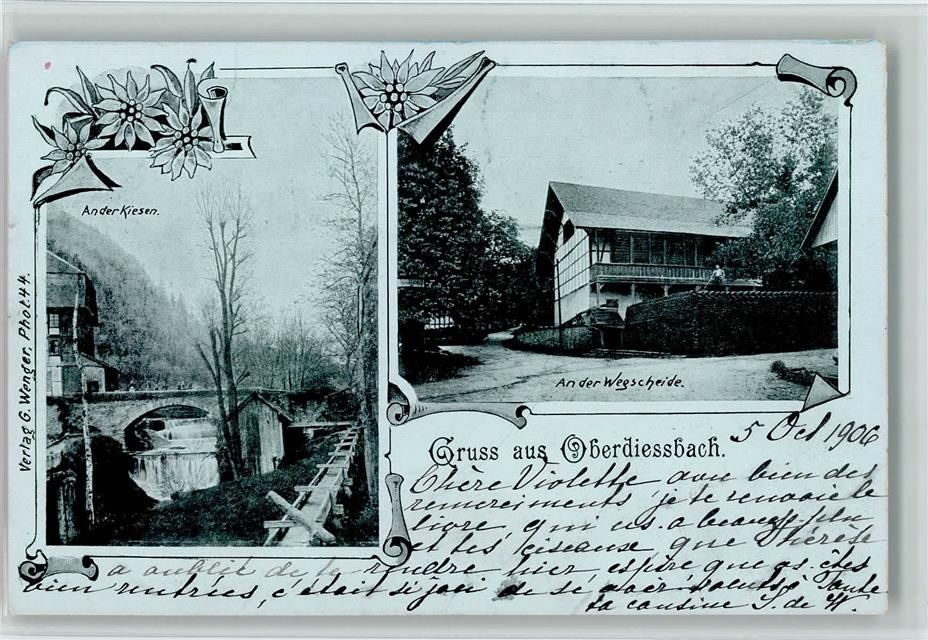 An der Kiesen.
An der Wegscheide.
Verlag G. Wenger, Phot. 44.
Gruss aus Oberdiessbach.
5 Oct 1906
Chère Violette avec bien des
remerciements je te renvoie le
livre, qui ns. a beaucoup plu
et tes ciseaux, que Thérèse
a oublié de te rendre hier, espère que vs. êtes
bien rentrées, c'était si joli de se voir
ta cousine S. de W.